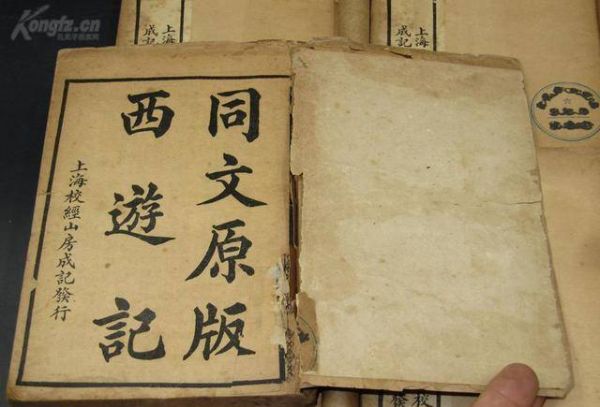 Kongfz.cn
上海
成記
上海
成記
同文原版
西遊記
上海校經山房成記發行
校
發行